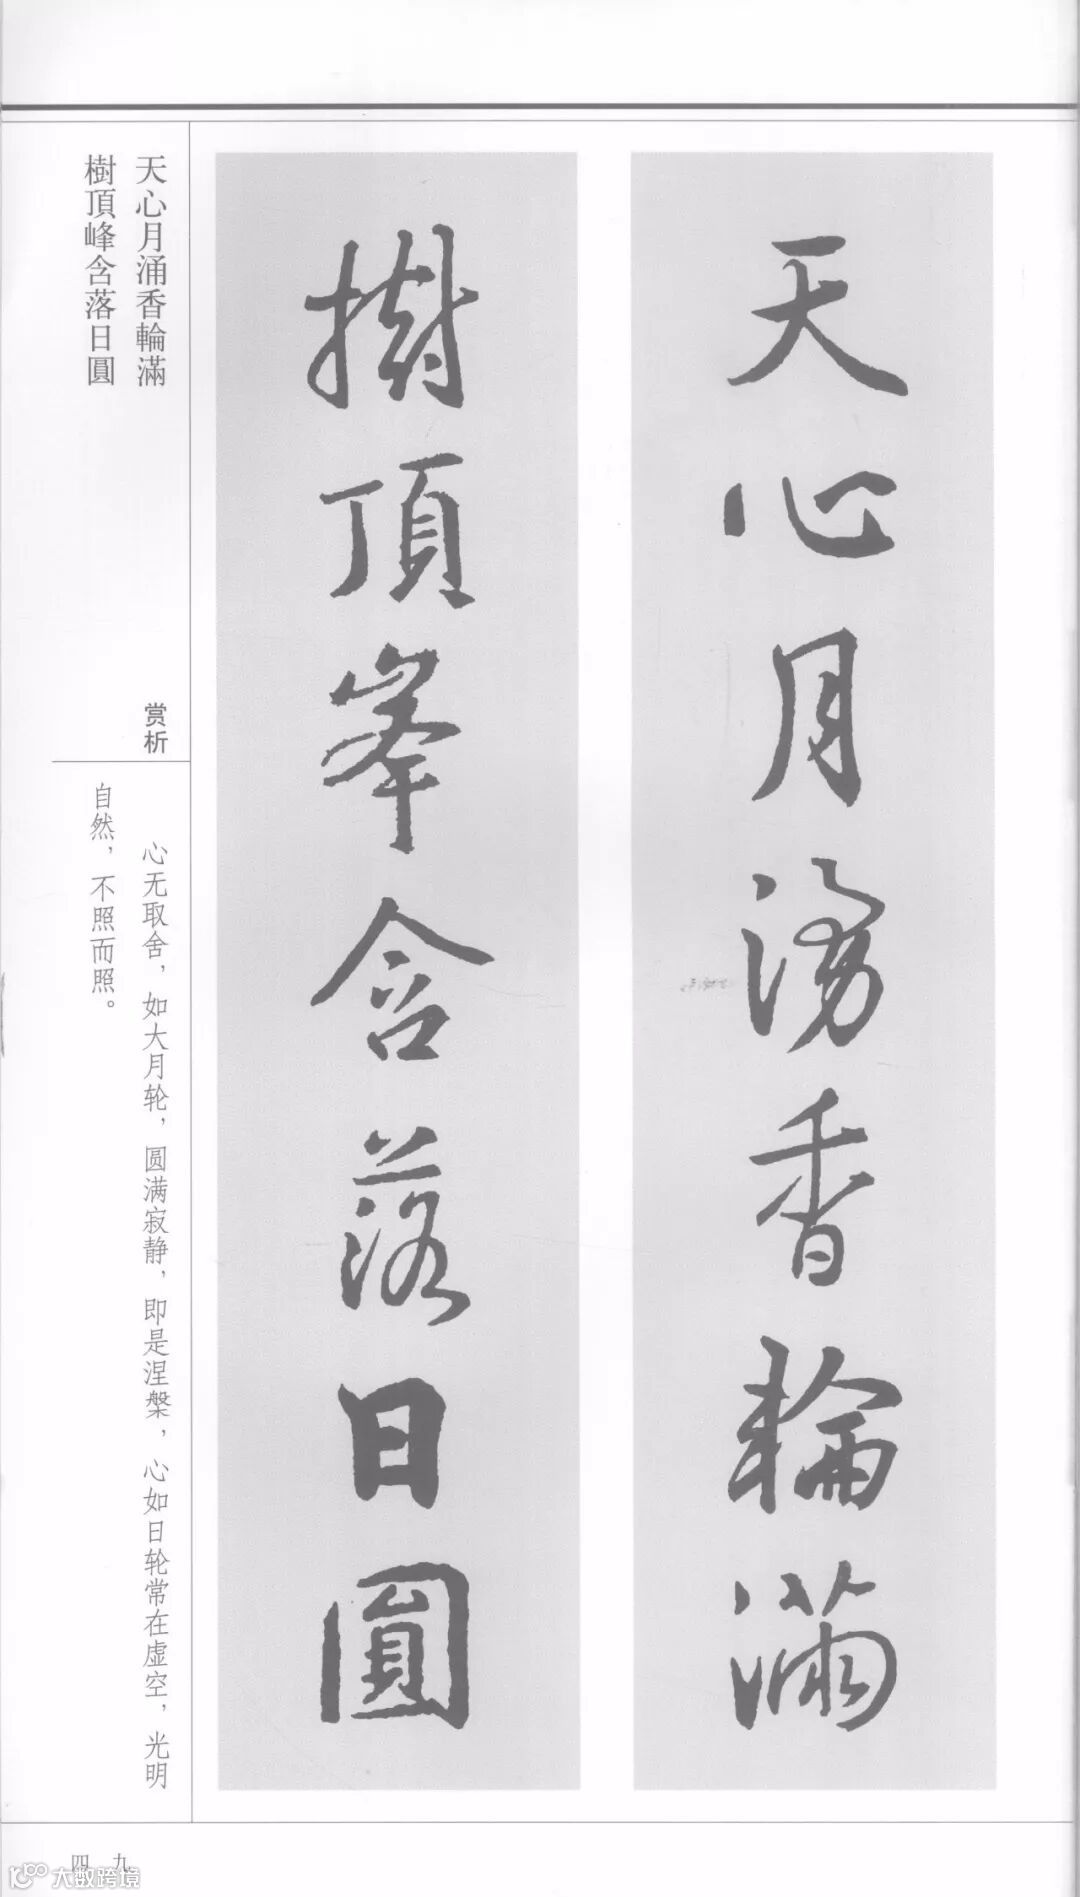 天心月湧香輪滿
樹頂峯含落日圓
天心月涌香輪滿
樹頂峰含落日圓
赏析
心无取舍，如大月轮，圆满寂静，即是涅槃，心如日轮常在虚空，光明
自然，不照而照。
四九
大数跨境